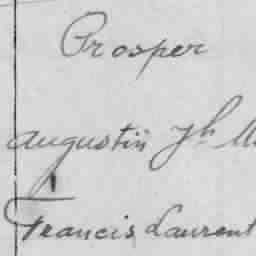 Prosper
Augustin Jh
Francis Laurent